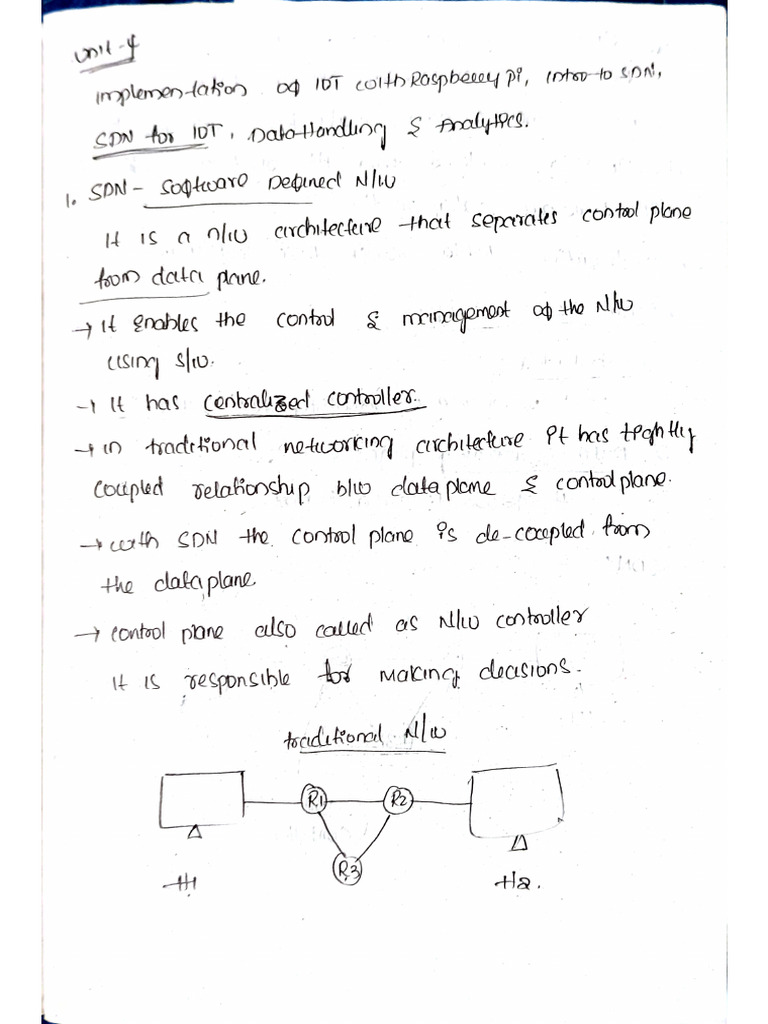 Unit-4
Implementation of IOT with Raspberry Pi, Intro to SDN,
SDN for IOT, Data Handling & Analytics.
1. SDN - Software Defined N/W
It is a n/w architecture that separates control plane
from data plane.
→ It enables the control & management of the N/w
using S/w.
→ It has centralized controller.
→ in traditional networking architecture it has tightly
coupled relationship b/w data plane & control plane.
→ with SDN the control plane is de-coupled from
the data plane.
→ control plane also called as N/w controller
It is responsible for making decisions.
traditional N/w
R1 R2
R3
H1 H2.